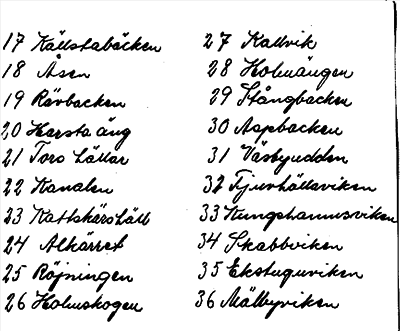 17 Källstabäcken
18 Åsen
19 Rävbacken
20 Harsta äng
21 Toro hällar
22 Kanalen
23 Kattskärshäll
24 Alkärret
25 Röjningen
26 Holmskogen
27 Kallvik
28 Holmängen
29 Stångbacken
30 Aspbacken
31 Väsbyudden
32 Tjuvhällaviken
33 Kungshamnsviken
34 Skabbviken
35 Ekstuguviken
36 Mälbyviken